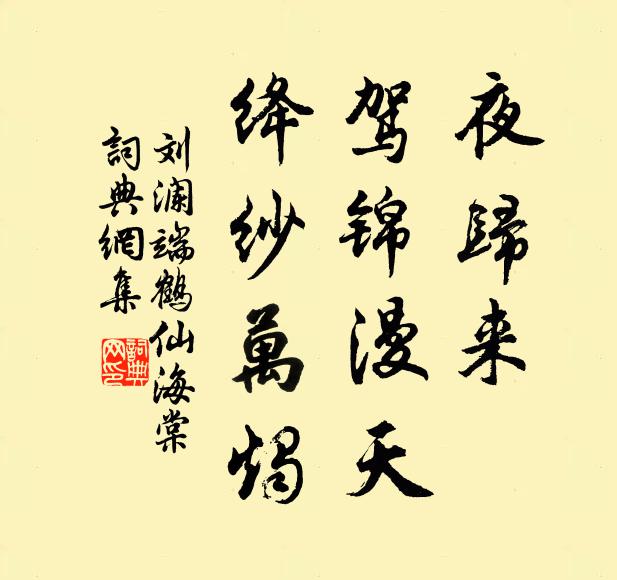 夜歸来
驾锦漫天
绛纱萬烛
刘澜端鹤仙海棠
詞典網集
詞典网印